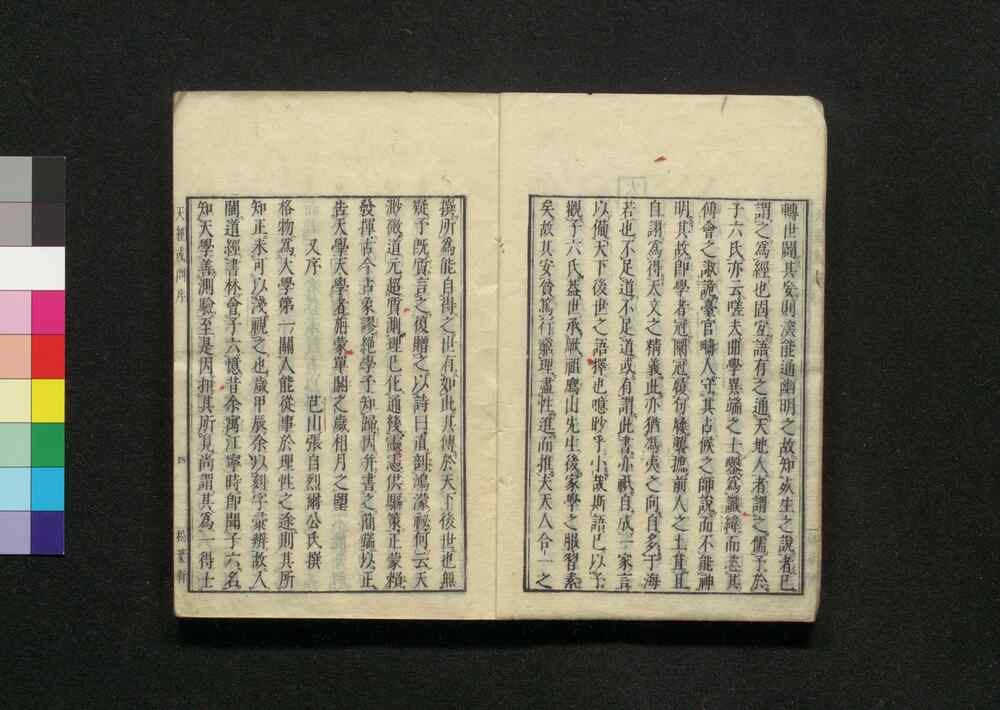 轉世闢其安則溱能通幽明之故知死生之說者已
謂之為經也固宜語有之通天地人者謂之儒予於
予六氏亦云嗟夫曲學異端之士鑿為讖緯而悉其
傅會之淑詭臺官疇人守其占候之師說而不能神
明其故即學者冠圜冠履句屨襲摭前人之土苴且
自詡為得天文之精義此亦猶馮夷之向自多于海
若也不足道不足道或有謂此書亦祇自成一家言
以備天下後世之語擇也噫眇乎小哉斯語已以予
觀子六氏蓋世承厥祖鷹山先生後家學之服習素
矣故其安貧篤行窮理盡性進而推夫天人合一之
撰所為能自得之世有如此其傳於天下後世也無
疑予既質言之復贈之以詩曰直剖鴻濛祕何云天
渺微道元超質測理已化通幾靈憲供驅策正蒙賴
發揮古今占象謬絕學予知歸因并書之簡端以正
告天學天學者旃蒙單閼之歲相月之朢
又序 芑山張自烈爾公氏撰
格物為大學第一關人能從事於理性之途則其所
知正未可以淺視之也歲甲辰余以刻字彙辨故入
閩道經書林會子六憶昔余寓江寧時即聞子六名
知天學善測驗至是因掀其所見尚謂其為一得士
天經或問序
四
松葉軒